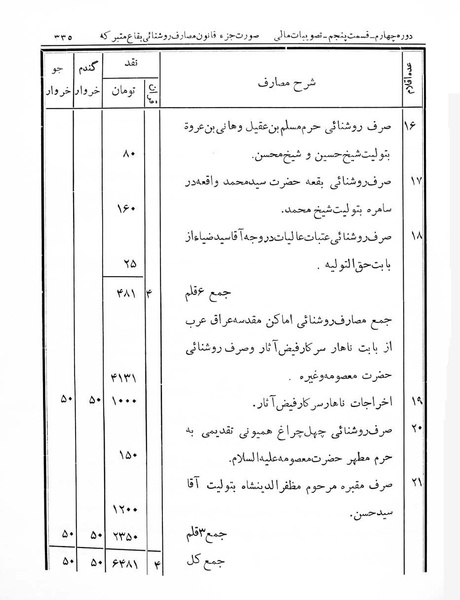 دوره چهارم ـ قسمت پنجم ـ تصویبات مالی صورت جزء قانون مصارف روشنائی بقاع متبرکه ۳۳۵
عده اقلام شرح مصارف نقد گندم جو
قران تومان خروار خروار
۱۶ صرف روشنائی حرم مسلم بن عقیل وهانی بن عروة
بتولیت شیخ حسین و شیخ محسن. ۸۰
۱۷ صرف روشنائی بقعه حضرت سید محمد واقعه در
سامره بتولیت شیخ محمد. ۱۶۰
۱۸ صرف روشنائی عتبات عالیات در وجه آقا سید ضیاء از
بابت حق التولیه . ۲۵
جمع ۶ قلم ۴ ۴۸۱
جمع مصارف روشنائی اماکن مقدسه عراق عرب
از بابت ناهار سرکار فیض آثار وصرف روشنائی
حضرت معصومه وغیره . ۴۱۳۱
۱۹ اخراجات ناهار سرکار فیض آثار. ۱۰۰۰ ۵۰ ۵۰
۲۰ صرف روشنائی چهل چراغ همیونی تقدیمی به
حرم مطهر حضرت معصومه علیه السلام. ۱۵۰
۲۱ صرف مقبره مرحوم مظفرالدینشاه بتولیت آقا
سید حسن. ۱۲۰۰
جمع ۳ قلم ۲۳۵۰ ۵۰ ۵۰
جمع کل ۴ ۶۴۸۱ ۵۰ ۵۰